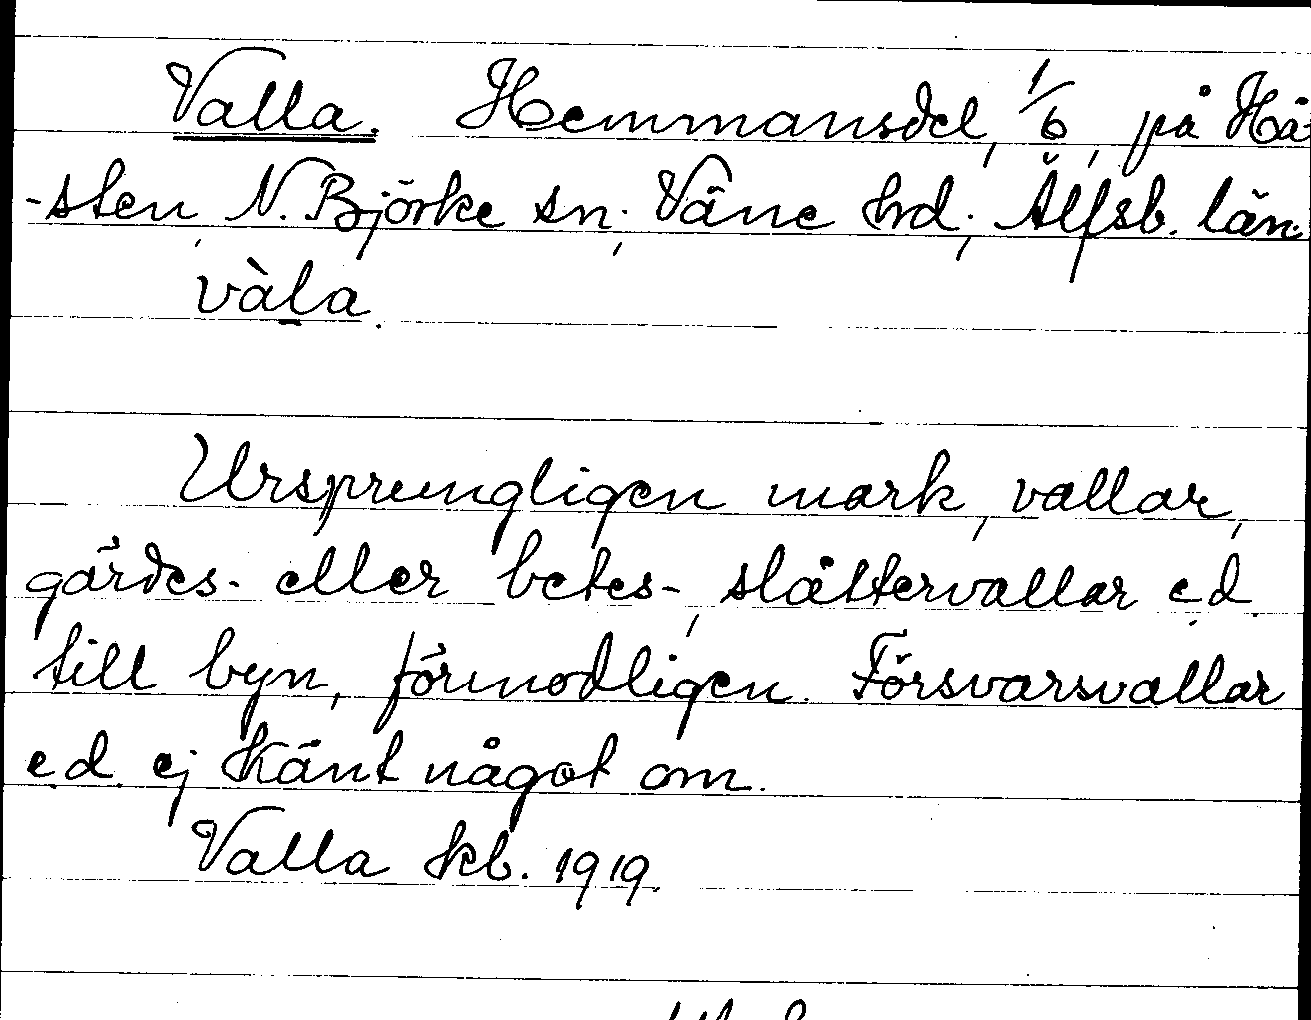 Valla. Hemmansdel, 1/6, på Hå
-sten, N. Björke sn; Väne hrd; Älfsb. län.
vàla.
Ursprungligen mark, vallar,
gärdes- eller betes-, slåttervallar e.d.
till byn, förmodligen. Försvarsvallar
e.d. ej känt något om.
Valla kb. 1919.